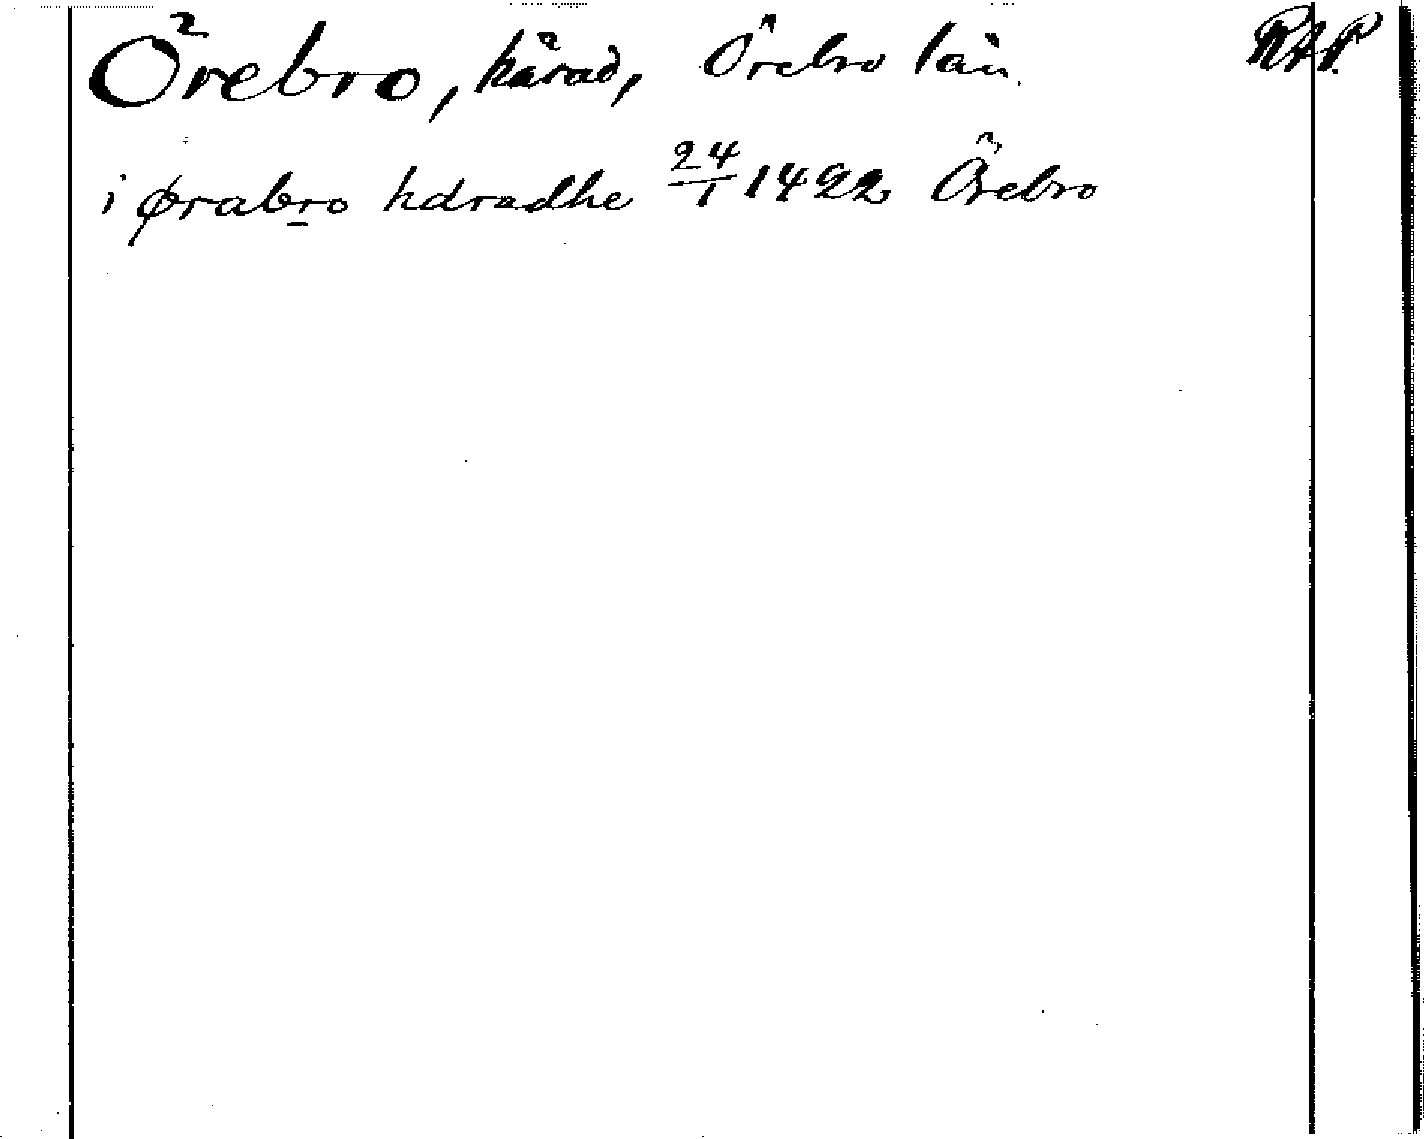 Örebro, härad, Örebro län. RAP.
i ørabro hdradhe 24/1 1422 Örebro